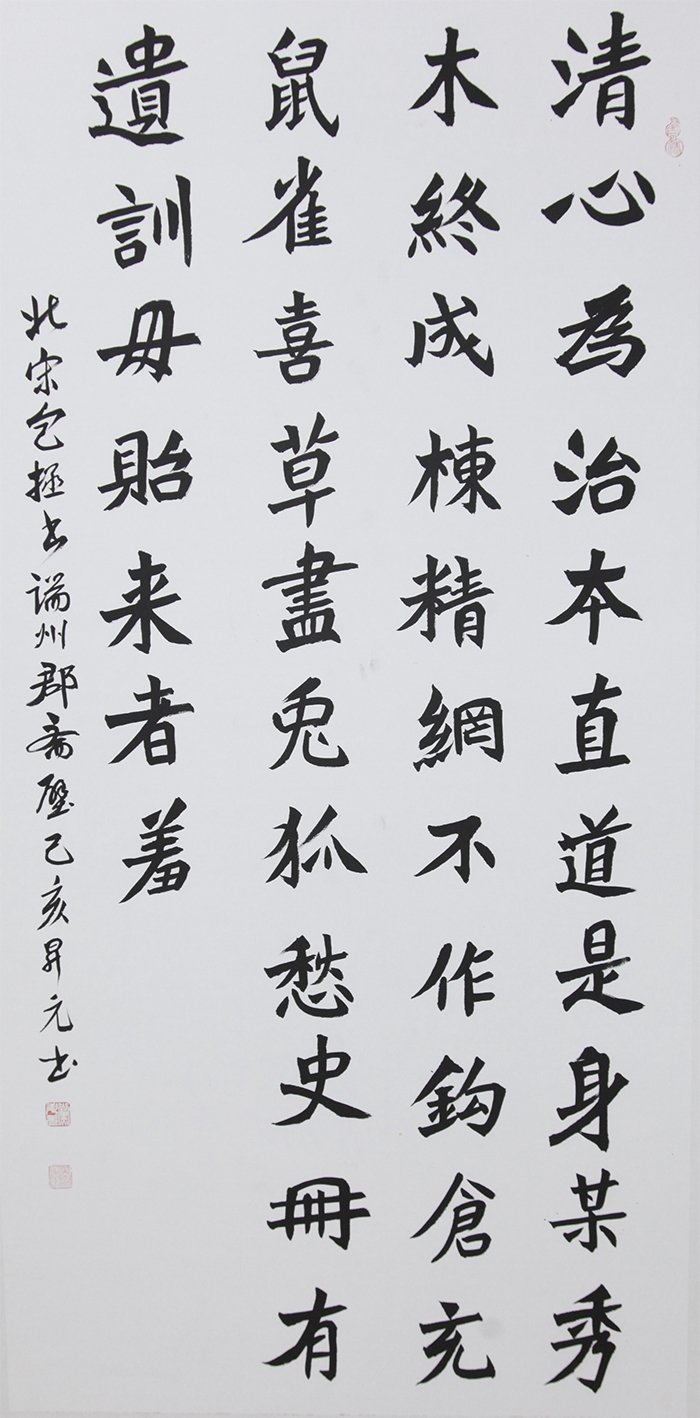 清心為治本直道是身某秀
木終成棟精網不作鈎倉充
鼠雀喜草盡兎狐愁史冊有
遺訓毋貽来者羞
北宋包拯书端州郡斋壁己亥昇元书